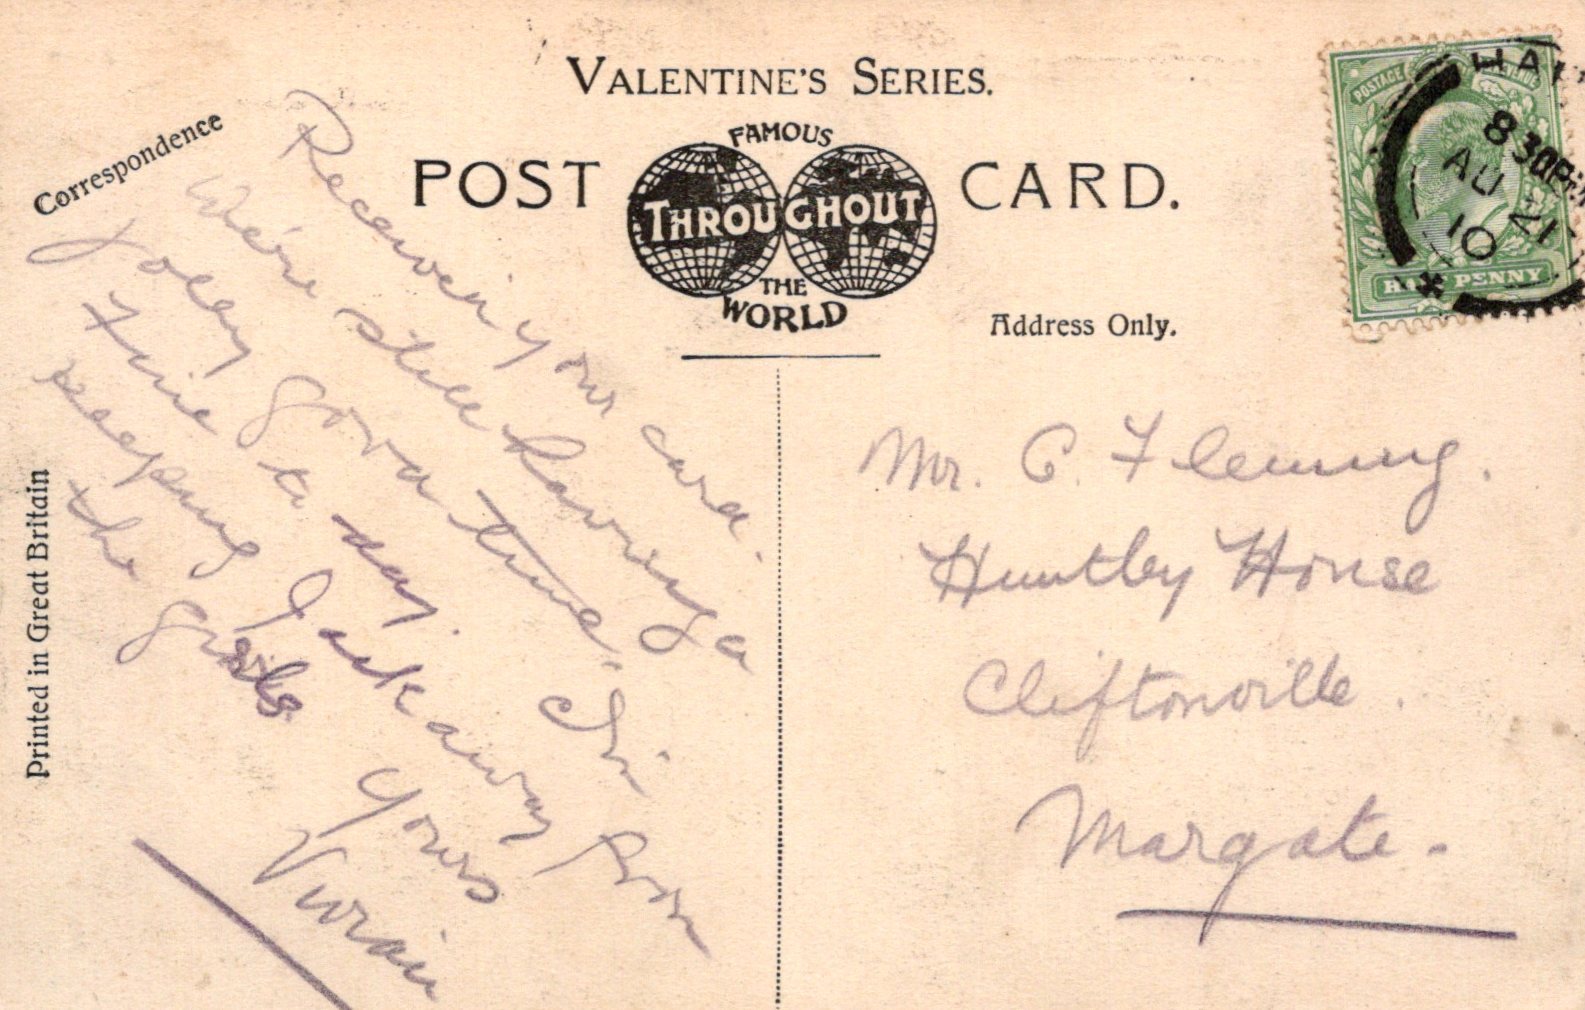 VALENTINE'S SERIES.
FAMOUS
POST THROUGHOUT CARD.
THE
WORLD
Correspondence
Address Only.
Printed in Great Britain
POSTAGE REVENUE
HALF PENNY
HA
8 30PM
AU 21
10
Received your card.
We're still having a
jolly good time,
Fine to day. I'm
keeping Jack away from
the girls.
Yours
Vivian
Mr. C. Fleming.
Huntley House
Cliftonville.
Margate.